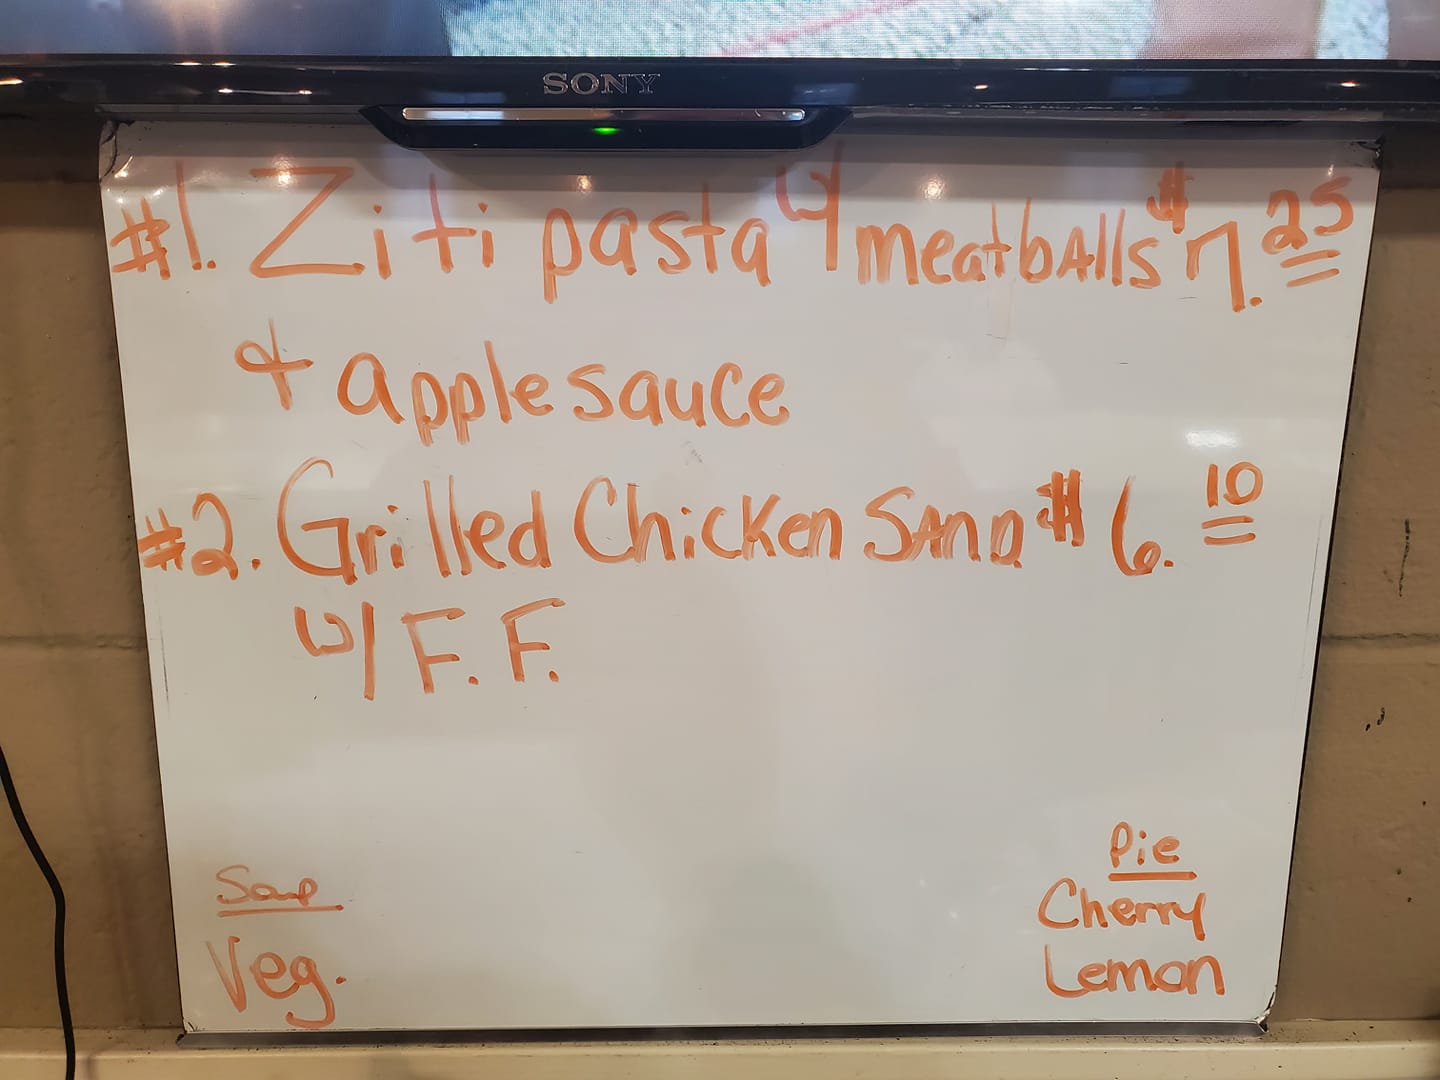 SONY
#1. Ziti pasta 4 meatbAlls $7.25
& applesauce
#2. Grilled Chicken SAND $6.10
w/ F.F.
Soup
Veg.
Pie
Cherry
Lemon